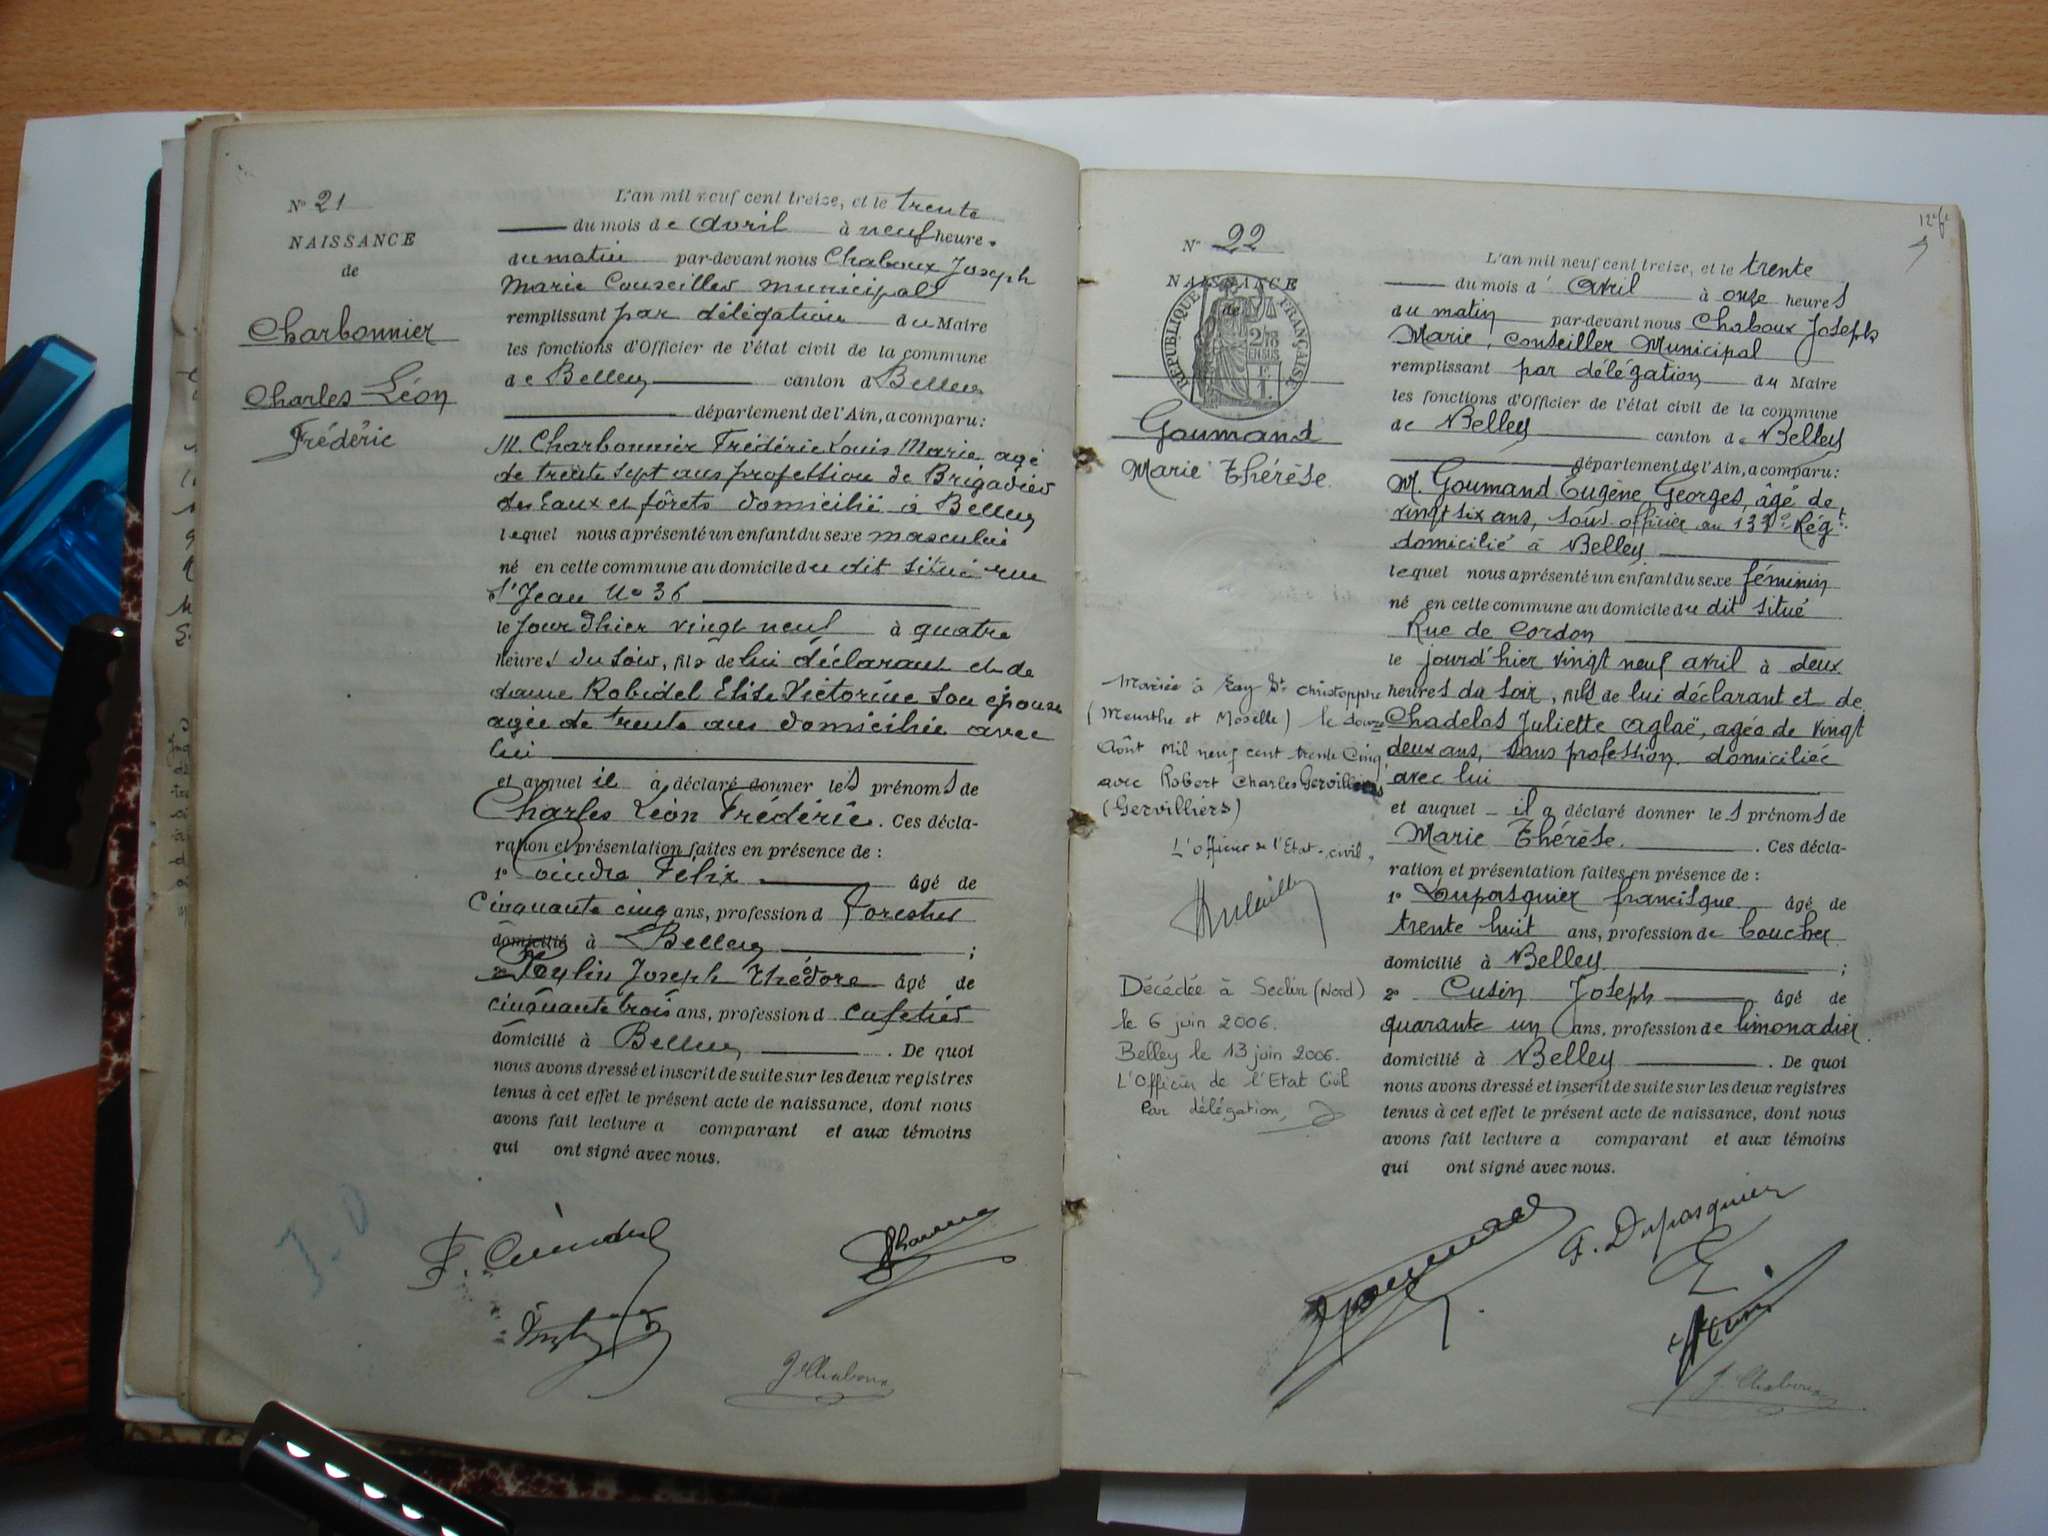 N° 21
NAISSANCE
de
Charbonnier
Charles Léon
Frédéric
L'an mil neuf cent treize, et le trente
du mois de avril à neuf heures
du matin par-devant nous Chaboux Joseph
Marie Conseiller municipal
remplissant par délégation du Maire
les fonctions d'Officier de l'état civil de la commune
de Belley canton d Belley
département de l'Ain, a comparu:
M. Charbonnier Frédéric Louis Marie, agé
de trente sept ans profession de Brigadier
des Eaux et fôrets domicilié à Belley
lequel nous a présenté un enfant du sexe masculin
né en cette commune au domicile du dit situé rue
St Jean No 36
le jour d'hier vingt neuf à quatre
heures du soir, fils de lui déclarant et de
dame Robidel Elise Victorine son épouse
agée de trente ans domiciliée avec
lui
et auquel il à déclaré donner les prénoms de
Charles Léon Frédéric. Ces décla-
ration et présentation faites en présence de :
1° Coindre Félix âgé de
Cinquante cinq ans, profession d forestier
domicilié à Belley ;
2° Joseph Théodore âgé de
cinquante trois ans, profession d cafetier
domicilié à Belley . De quoi
nous avons dressé et inscrit de suite sur les deux registres
tenus à cet effet le présent acte de naissance, dont nous
avons fait lecture a comparant et aux témoins
qui ont signé avec nous.
J. Chaboux
12e ft
N° 22
NAISSANCE
de
RÉPUBLIQUE FRANÇAISE
2/10
EN SUS
Goumand
Marie Thérèse.
L'an mil neuf cent treize, et le trente
du mois d' Avril à onze heures
du matin par-devant nous Chaboux Joseph
Marie, Conseiller Municipal
remplissant par délégation du Maire
les fonctions d'Officier de l'état civil de la commune
de Belley canton de Belley
département de l'Ain, a comparu:
M. Goumand Eugène Georges, âgé de
vingt six ans, sous officier au 133e Régt
domicilié à Belley
lequel nous a présenté un enfant du sexe féminin
né en cette commune au domicile du dit situé
Rue de Cordon
le jourd'hier vingt neuf avril à deux
heures du soir, fils de lui déclarant et de
Chadelas Juliette Aglaë, agée de vingt
deux ans, sans profession, domiciliée
avec lui
et auquel il a déclaré donner les prénoms de
Marie Thérèse. Ces décla-
ration et présentation faites en présence de :
1° Dupasquier francisque âgé de
trente huit ans, profession de boucher
domicilié à Belley ;
2° Cusin Joseph âgé de
quarante un ans, profession de limonadier
domicilié à Belley . De quoi
nous avons dressé et inscrit de suite sur les deux registres
tenus à cet effet le présent acte de naissance, dont nous
avons fait lecture a comparant et aux témoins
qui ont signé avec nous.
Mariée à Xay St Christophe
(Meurthe et Moselle) le douze
Août mil neuf cent trente cinq
avec Robert Charles Gervilliers
(Gervilliers)
L'Officier de l'Etat-civil,
Décédée à Seclin (Nord)
le 6 juin 2006.
Belley le 13 juin 2006.
L'Officier de l'Etat Civil
Par délégation,
Goumand
F. Dupasquier
J. Chaboux